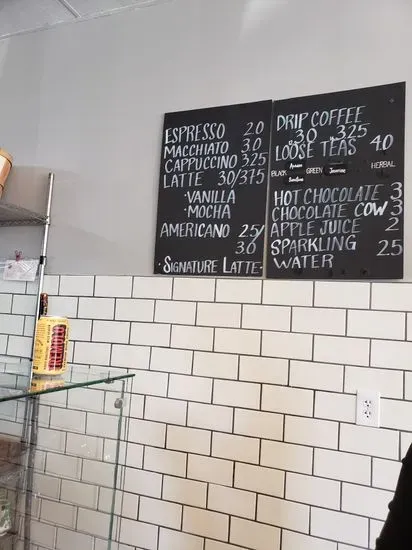 ESPRESSO 2.0
MACCHIATO 3.0
CAPPUCCINO 3.25
LATTE 3.0/3.75
·VANILLA
·MOCHA
AMERICANO 2.5/
3.6
·SIGNATURE LATTE·
DRIP COFFEE
3.0 3.25
LOOSE TEAS 4.0
BLACK GREEN Jasmine HERBAL
HOT CHOCOLATE 3
CHOCOLATE COW 3
APPLE JUICE 2
SPARKLING
WATER 2.5